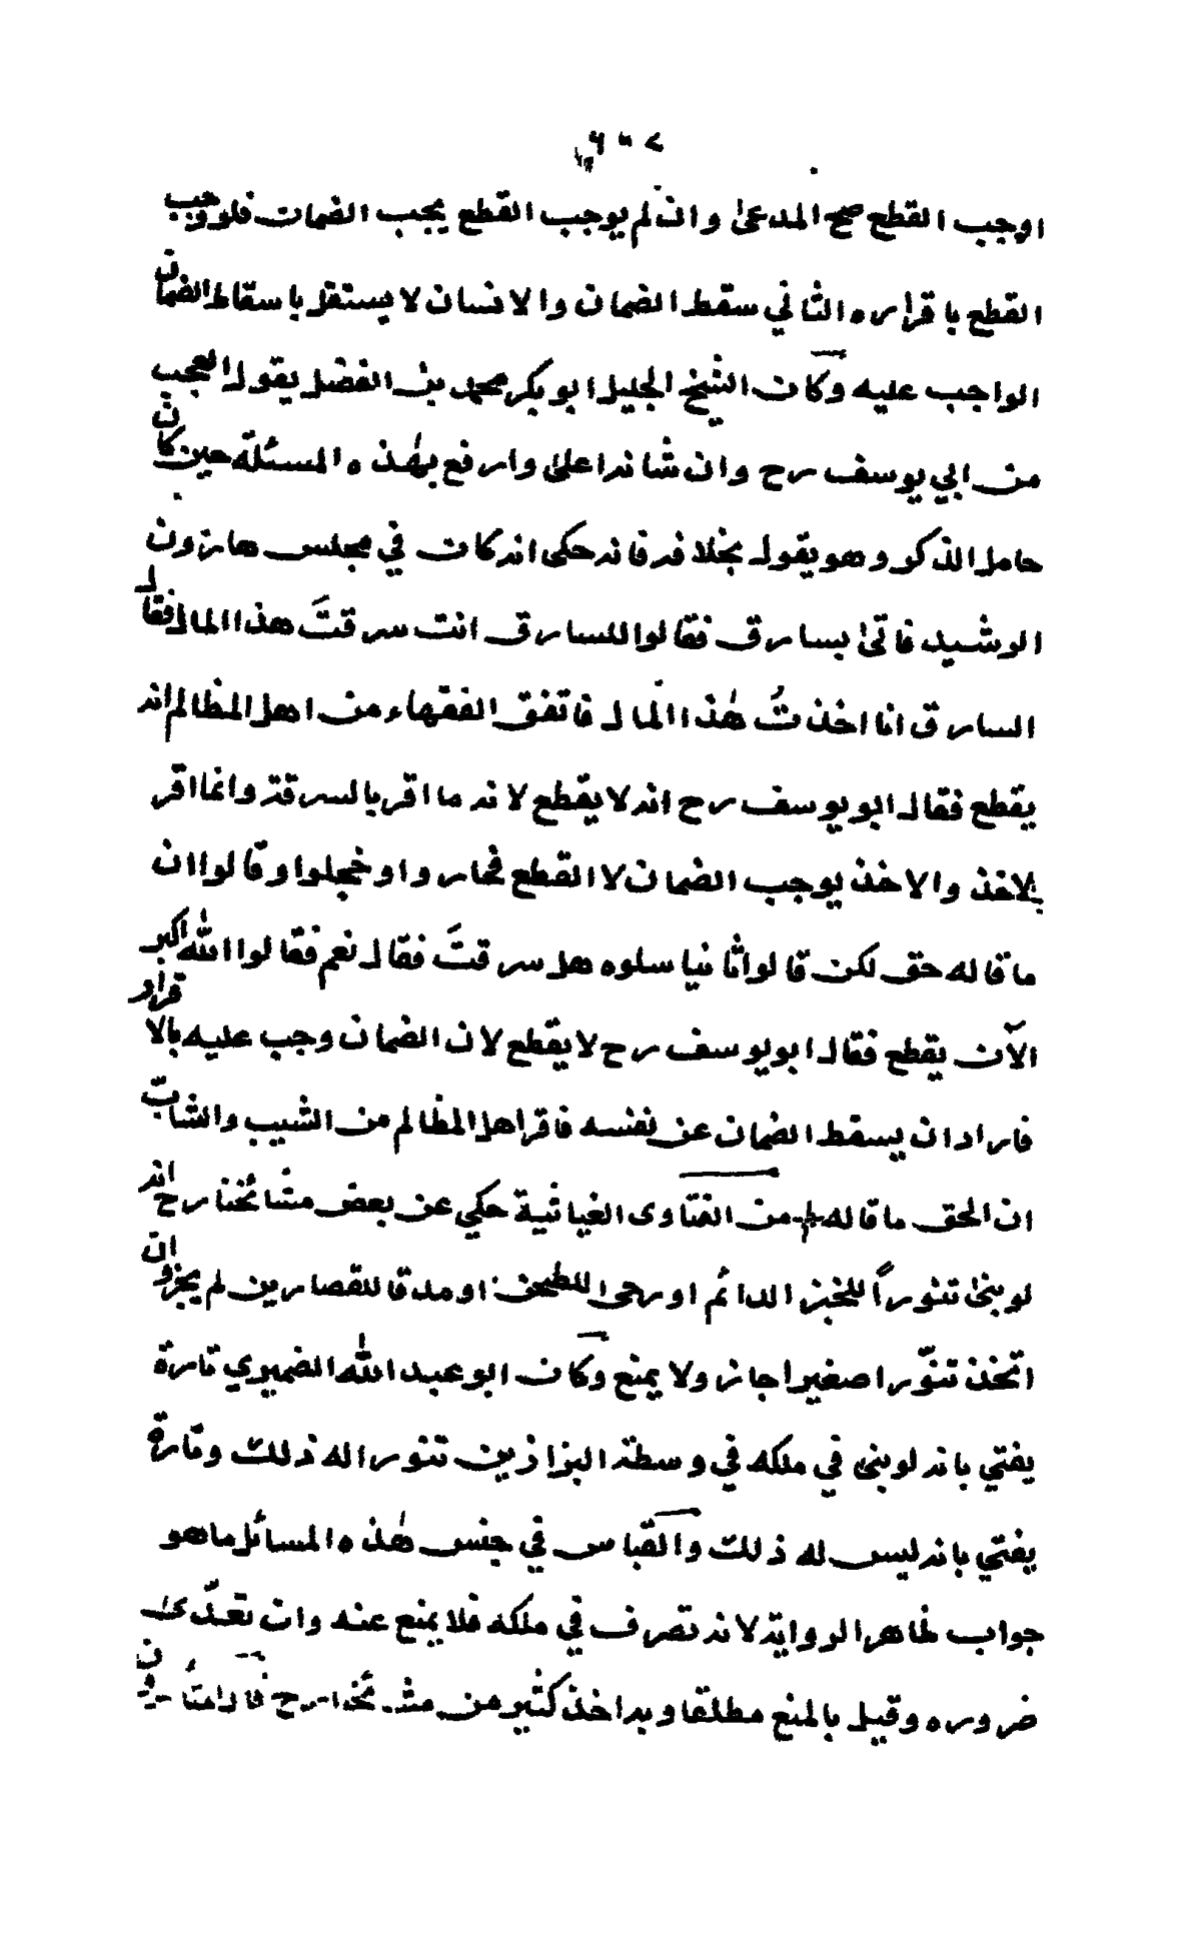 اوجب القطع صح المدعى وان لم يوجب القطع يجب الضمان فلو وجب
القطع باقراره الثاني سقط الضمان والانسان لا يستقل باسقاط الضمان
الواجب عليه وكان الشيخ الجليل ابو بكر محمد بن الفضل يقول العجب
من ابي يوسف رح وان شانه اعلى وارفع بهذه المسئلة حين كان
حامل الذكر وهو يقول بخلافه فانه حكى انه كان في مجلس هارون
الرشيد فاتى بسارق فقالوا للسارق انت سرقتَ هذا المال فقال
السارق انا اخذتُ هٰذا المال فاتفق الفقهاء من اهل المظالم انه
يقطع فقال ابو يوسف رح انه لا يقطع لانه ما اقر بالسرقة وانما اقر
بالاخذ والاخذ يوجب الضمان لا القطع فحاروا وخجلوا وقالوا ان
ما قاله حق لكن قالوا ثانيا سلوه هل سرقتَ فقال نعم فقالوا الله اكبر
الآن يقطع فقال ابو يوسف رح لا يقطع لان الضمان وجب عليه بالاقرار
فاراد ان يسقط الضمان عن نفسه فاقر اهل المظالم من الشيب والشابّ
ان الحق ما قاله من الفتاوى الغياثية حكي عن بعض مشائخنا رح انه
لو بنى تنوراً للخبز الدائم او رحى للطحن او مدقا للقصارين لم يجز وان
اتخذ تنّورا صغيرا جاز ولا يمنع وكان ابو عبد الله الضميري تارة
يفتي بانه لو بنى في ملكه في وسطة البزازين تنورا له ذلك وتارة
يفتي بانه ليس له ذلك والقياس في جنس هٰذه المسائل ما هو
جواب ظاهر الرواية لانه تصرف في ملكه فلا يمنع عنه وان تعدّى
ضروره وقيل بالمنع مطلقا وبه اخذ كثير من مشائخنا رح